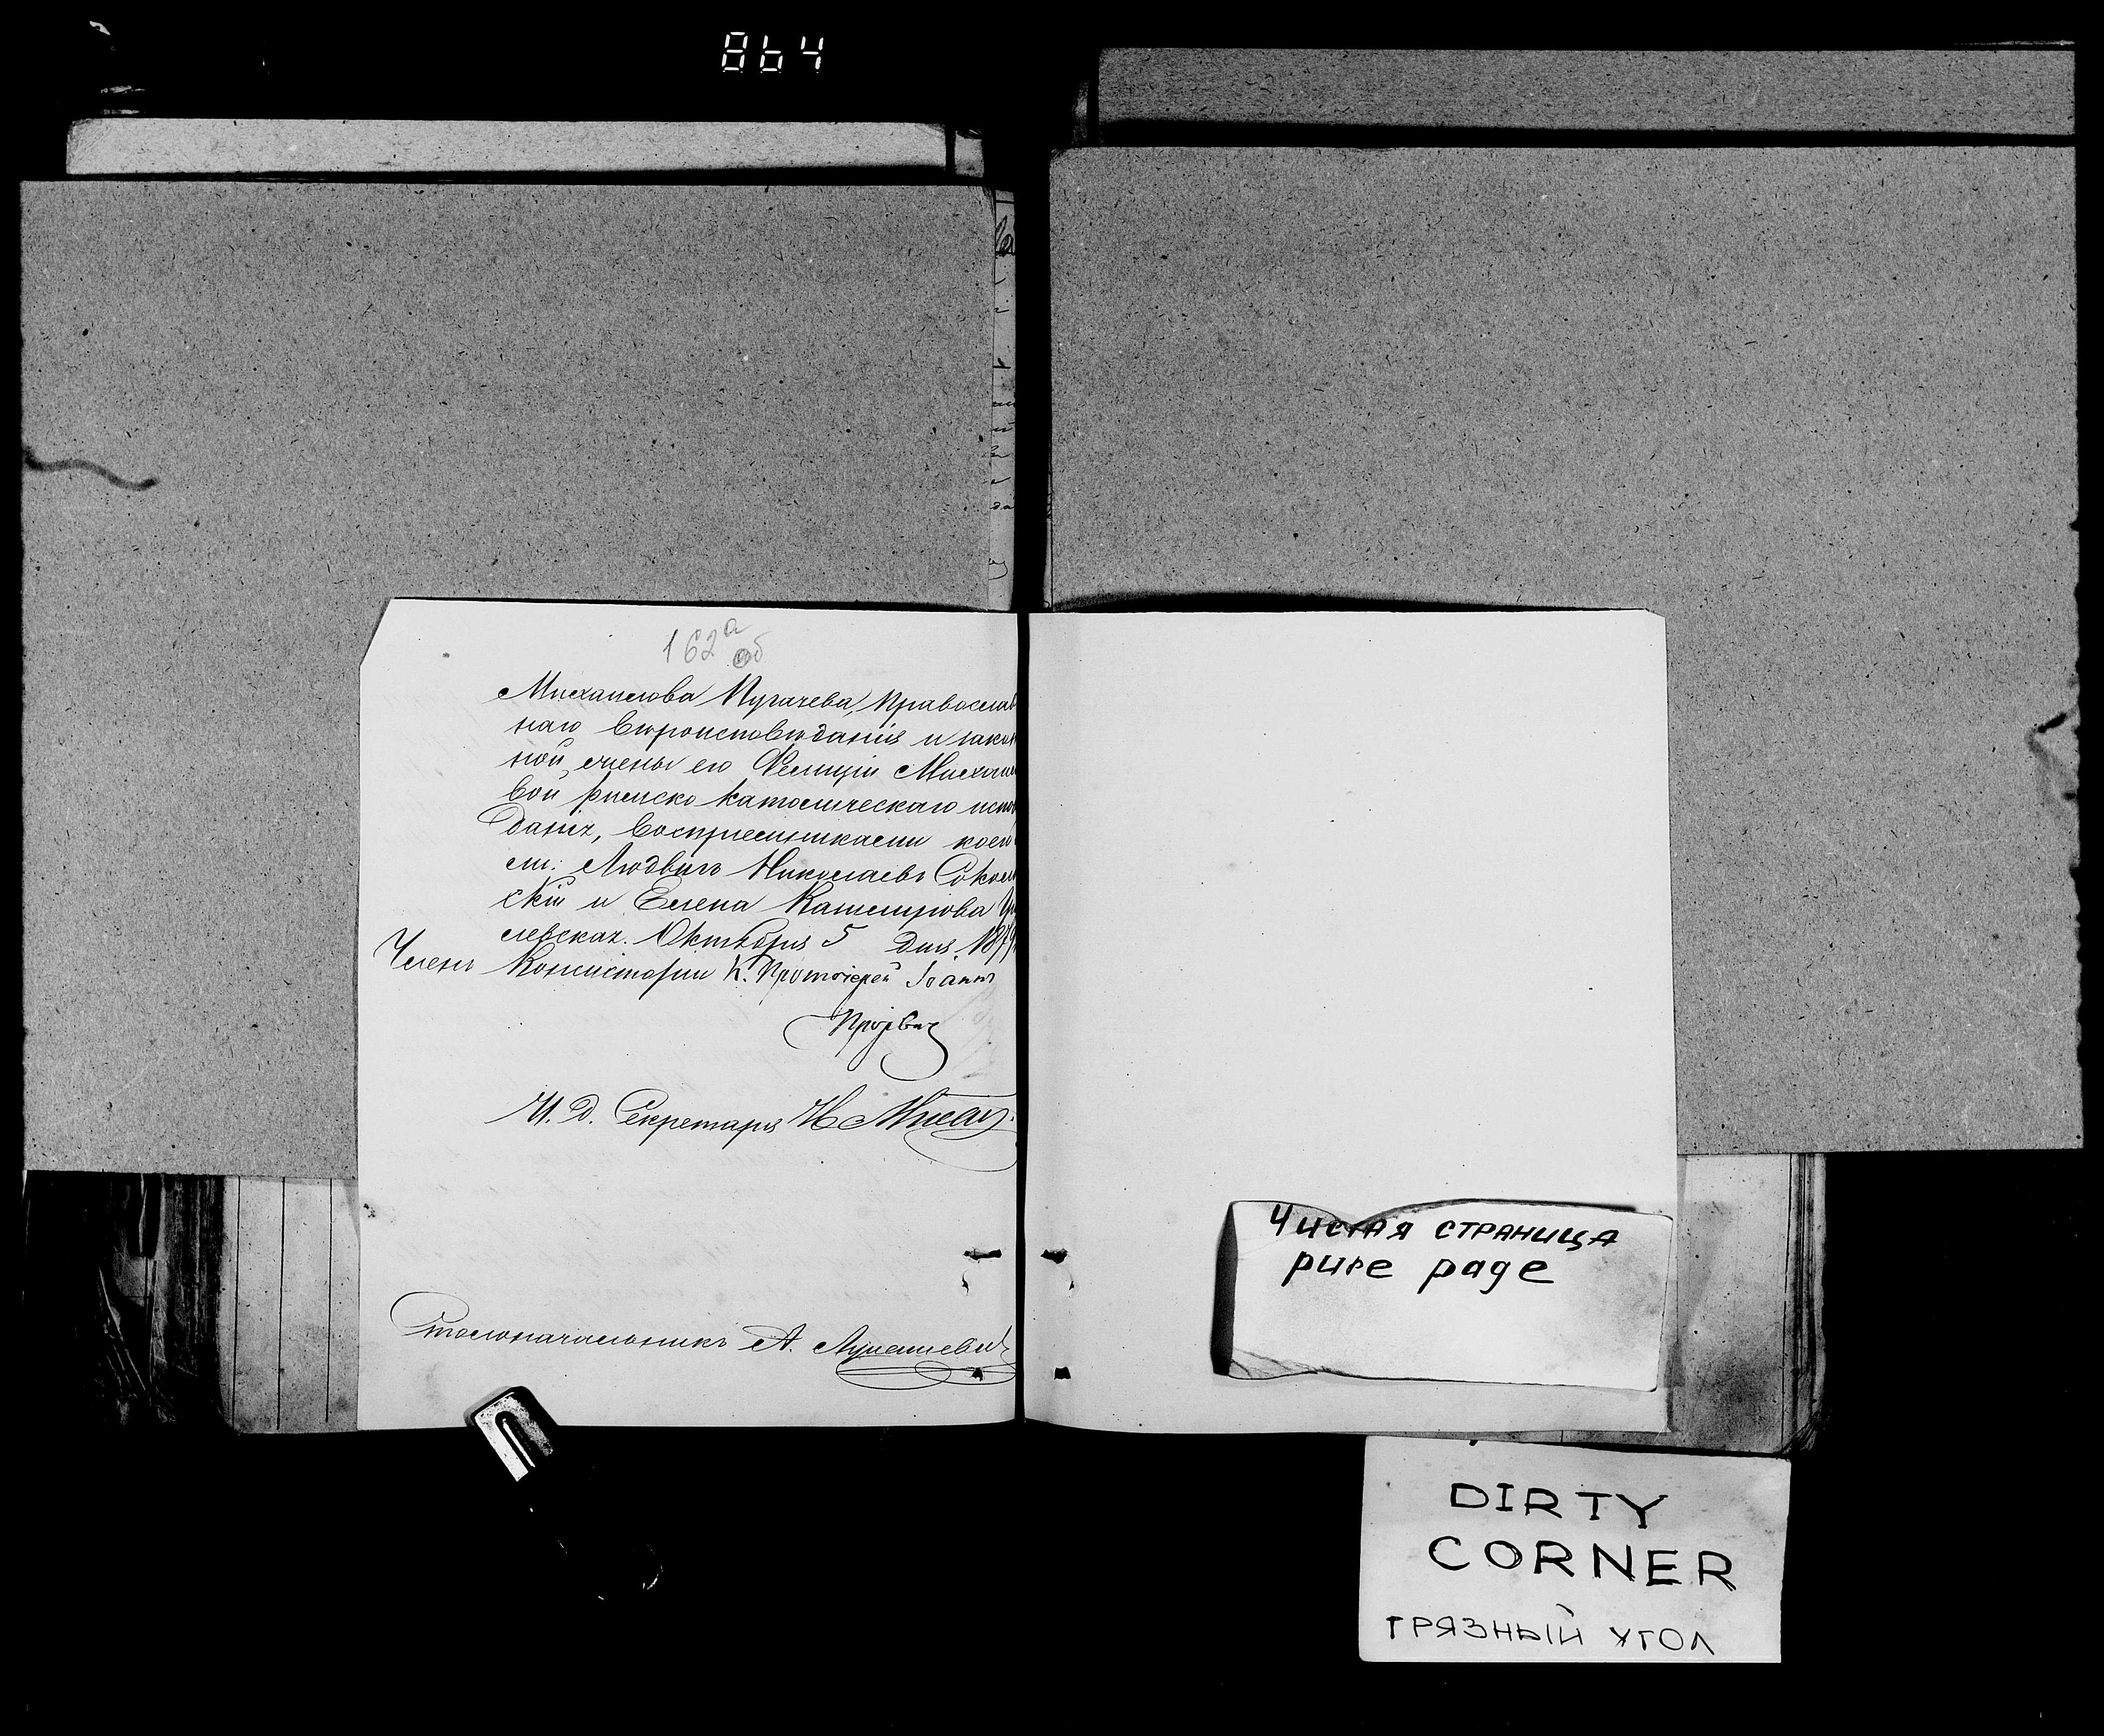 864
162а об
Михаилова Пугачева, православ
наго вѣроисповѣданія и закон
ной жены его Фелиціи Михаил
вой римско католическаго испо
данія, воспріемниками коего
ли: Людвигъ Николаевъ Сокол
скій и Елена Казимірова
левская. Октября 5 дня 187
Членъ Консисторіи К. Протоіерей Іоаннъ
И. Д. Секретаря Н
Столоначальникъ А.
Чистая страница
pure page
DIRTY
CORNER
ГРЯЗНЫЙ УГОЛ